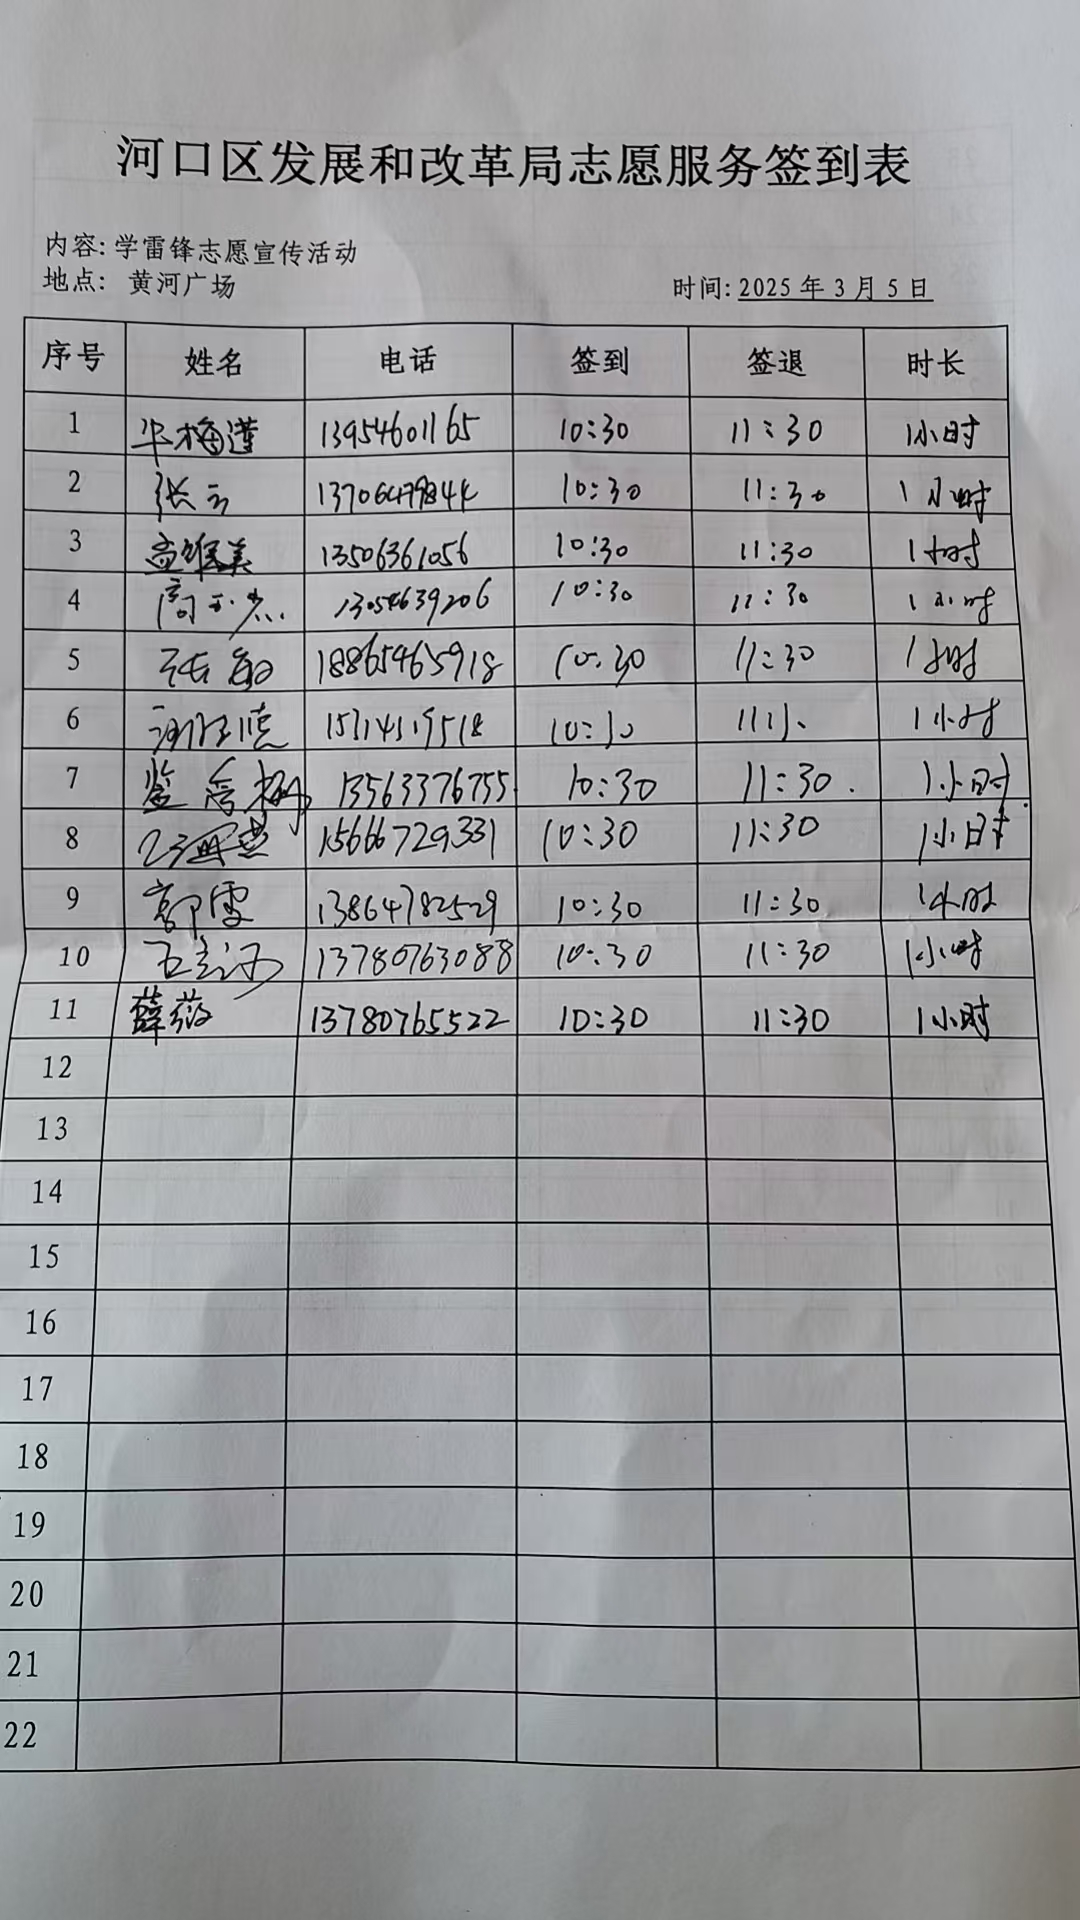 河口区发展和改革局志愿服务签到表
内容: 学雷锋志愿宣传活动
地点: 黄河广场 时间: 2025 年 3 月 5 日
序号 姓名 电话 签到 签退 时长
1 13954601165 10:30 11:30 1小时
2 张云 10:30 11:30 1小时
3 13506361056 10:30 11:30 1小时
4 10:30 11:30 1小时
5 张敏 18865465918 10:30 11:30 1小时
6 10:30 1小时
7 13563376755 10:30 11:30 1小时
8 15666729331 10:30 11:30 1小时
9 郭雯 13864782529 10:30 11:30 1小时
10 13780763088 10:30 11:30 1小时
11 薛薇 13780765522 10:30 11:30 1小时
12
13
14
15
16
17
18
19
20
21
22